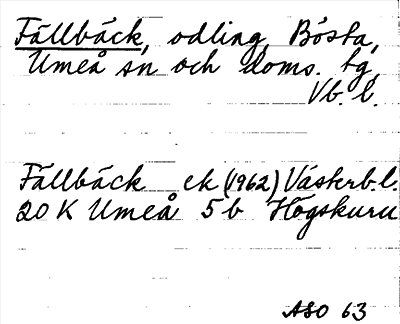 Fällbäck, odling, Bösta,
Umeå sn och doms. tg,
Vb. l.
Fällbäck ek (1962) Västerb. l.
20 K Umeå 5 b Högskuru
ASO 63